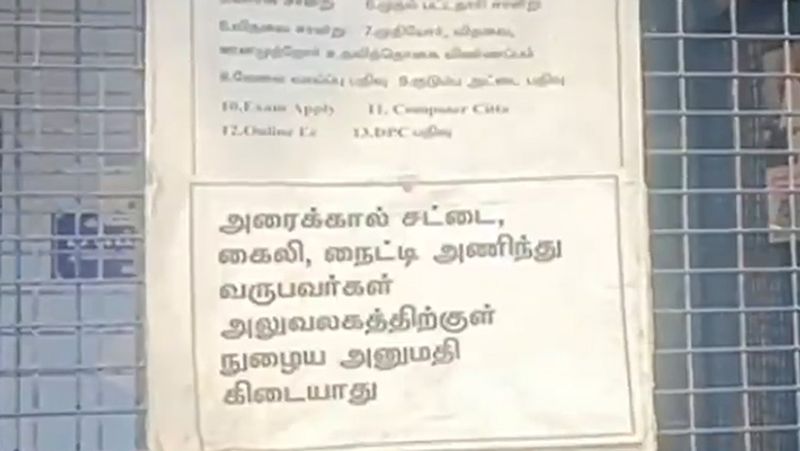 6.முதல் பட்டதாரி சான்று
6.விதவை சான்று 7.முதியோர், விதவை,
ஊனமுற்றோர் உதவித்தொகை விண்ணப்பம்
8.வேலை வாய்ப்பு பதிவு 9.குடும்ப அட்டை பதிவு
10.Exam Apply 11. Computer Citta
12.Online Ec 13.DPC பதிவு
அரைக்கால் சட்டை,
கைலி, நைட்டி அணிந்து
வருபவர்கள்
அலுவலகத்திற்குள்
நுழைய அனுமதி
கிடையாது